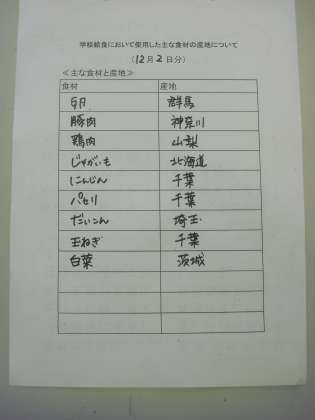 学校給食において使用した主な食材の産地について
(12月2日分)
≪主な食材と産地≫
食材 産地
卵 群馬
豚肉 神奈川
鶏肉 山梨
じゃがいも 北海道
にんじん 千葉
パセリ 千葉
だいこん 埼玉
玉ねぎ 千葉
白菜 茨城